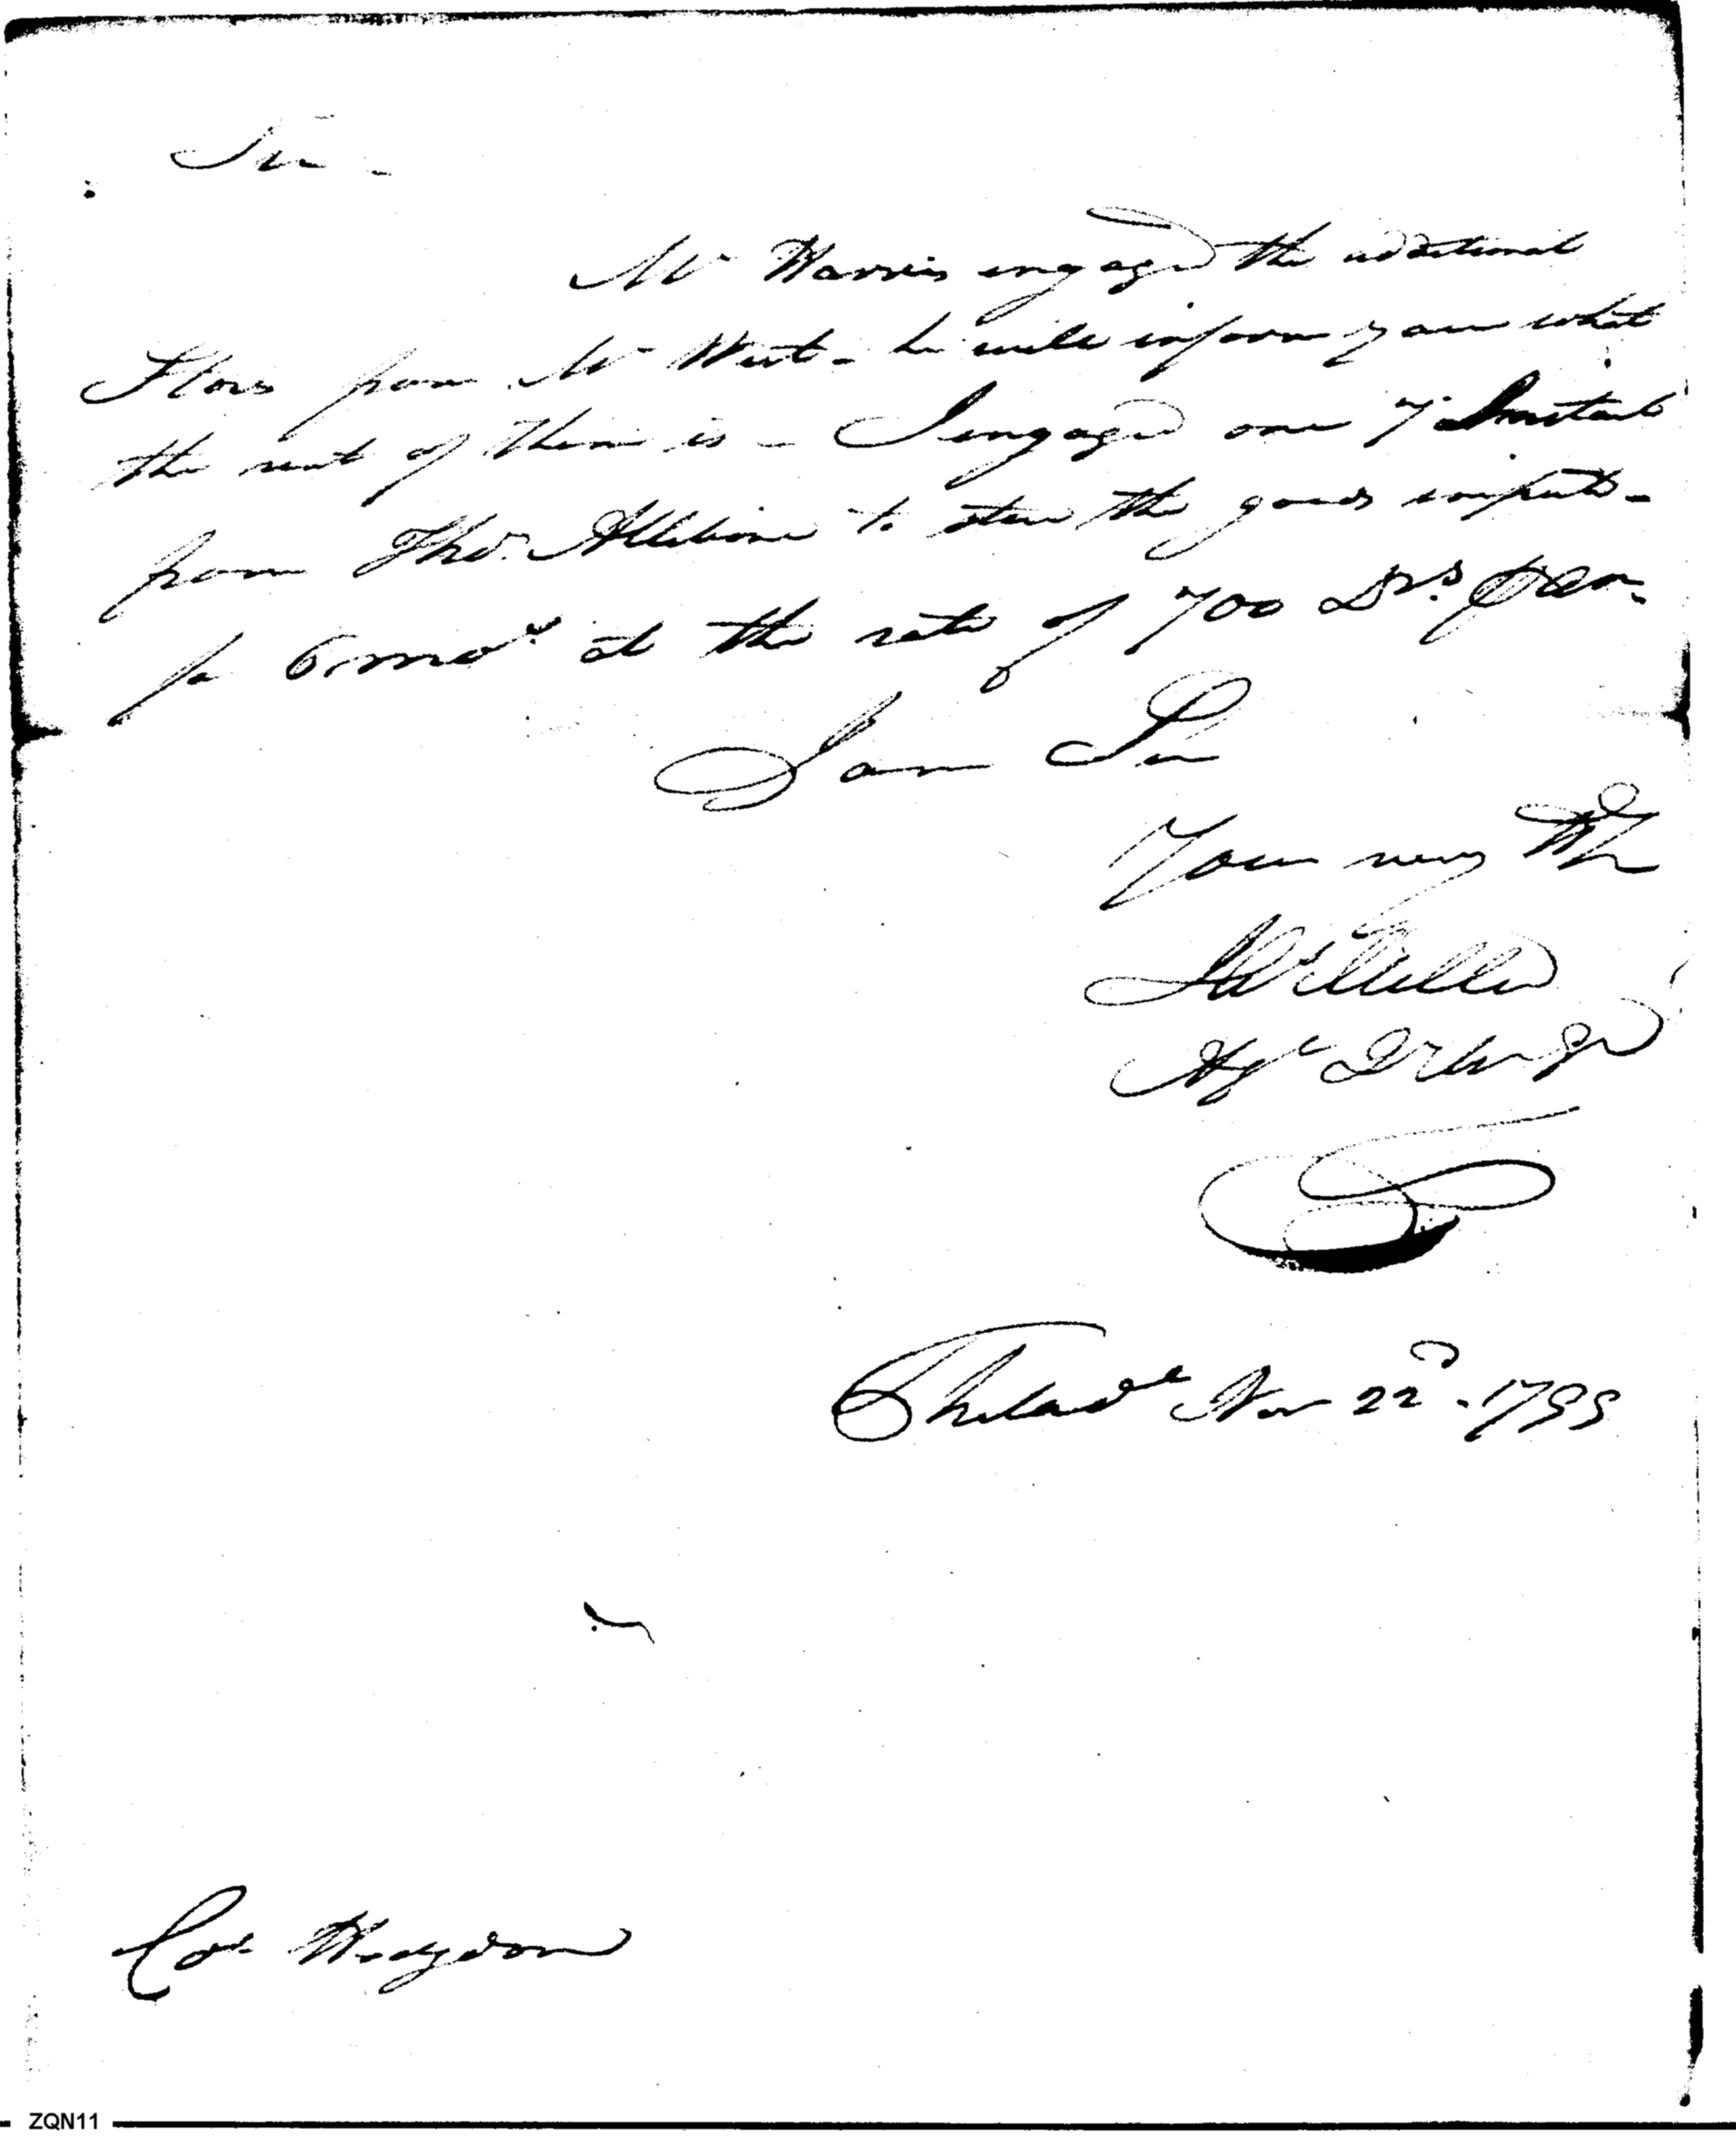 Sir -
Mr Harris engaged the additional
Stores from Mr West - he will inform you what
the rent of them is - I engaged one 7 Instant
from Thos. Allibone to store the goods imported -
for 6 mos. at the rate of 700 Drs. pr an.
I am Sir
Your very
Jn Miller
Agt
Philade Nov 22d. 1799
Col Hodgdon
ZQN11